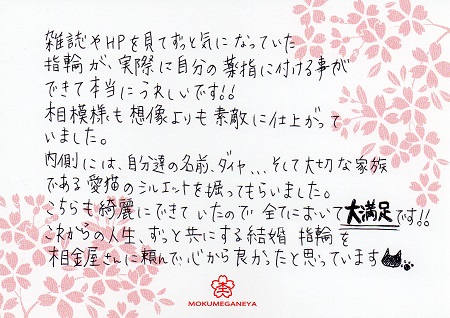 雑誌やHPを見てずっと気になっていた
指輪が、実際に自分の薬指に付ける事が
できて本当にうれしいです!!
相模様も想像よりも素敵に仕上がって
いました。
内側には、自分達の名前、ダイヤ、、、そして大切な家族
である愛猫のシルエットを掘ってもらいました。
こちらも綺麗にできていたので全てにおいて大満足です!!
これからの人生、ずっと共にする結婚指輪を
相金屋さんに頼んで心から良かったと思っています
MOKUMEGANEYA